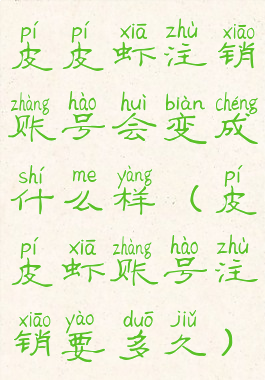 pí pí xiā zhù xiāo
皮皮虾注销
zhàng hào huì biàn chéng
账号会变成
shí me yàng pí
什么样（皮
pí xiā zhàng hào zhù
皮虾账号注
xiāo yào duō jiǔ
销要多久）